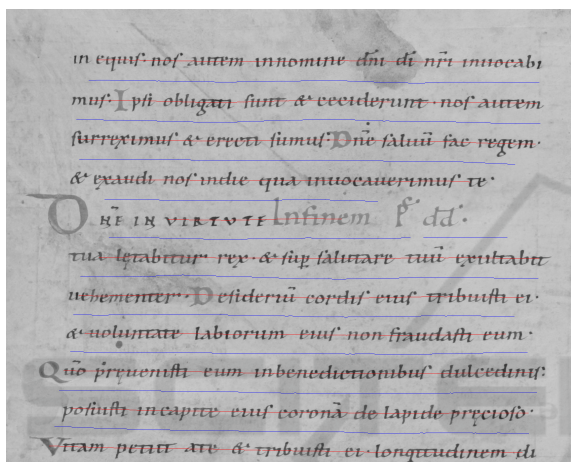 in equis· nos autem innomine dn̄i dī nr̄i inuocabi
mus· Ipsi obligati sunt & ceciderunt· nos autem
surreximus & erecti sumus· Dn̄e saluū fac regem·
& exaudi nos indie qua inuocauerimus te·
DN̄E IN VIRTVTE In finem ps̄ dd̄·
tua lętabitur rex· & sup̲ salutare tuū exultabit
uehementer· Desideriū cordis eius tribuisti ei·
& uoluntate labiorum eius non fraudasti eum·
Quō pręuenisti eum inbenedictionibus dulcedinis·
posuisti incapite eius coronā de lapide pręcioso·
Vitam petiit ate & tribuisti ei· longitudinem di